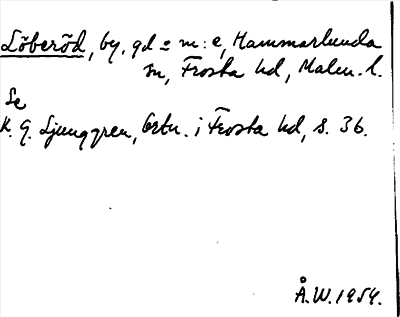 Löberöd, by, gd o m: e, Hammarlunda
sn, Frosta hd, Malm. l.
Se
K. G. Ljunggren, Ortn. i Frosta hd, s. 36.
Å.W. 1954.